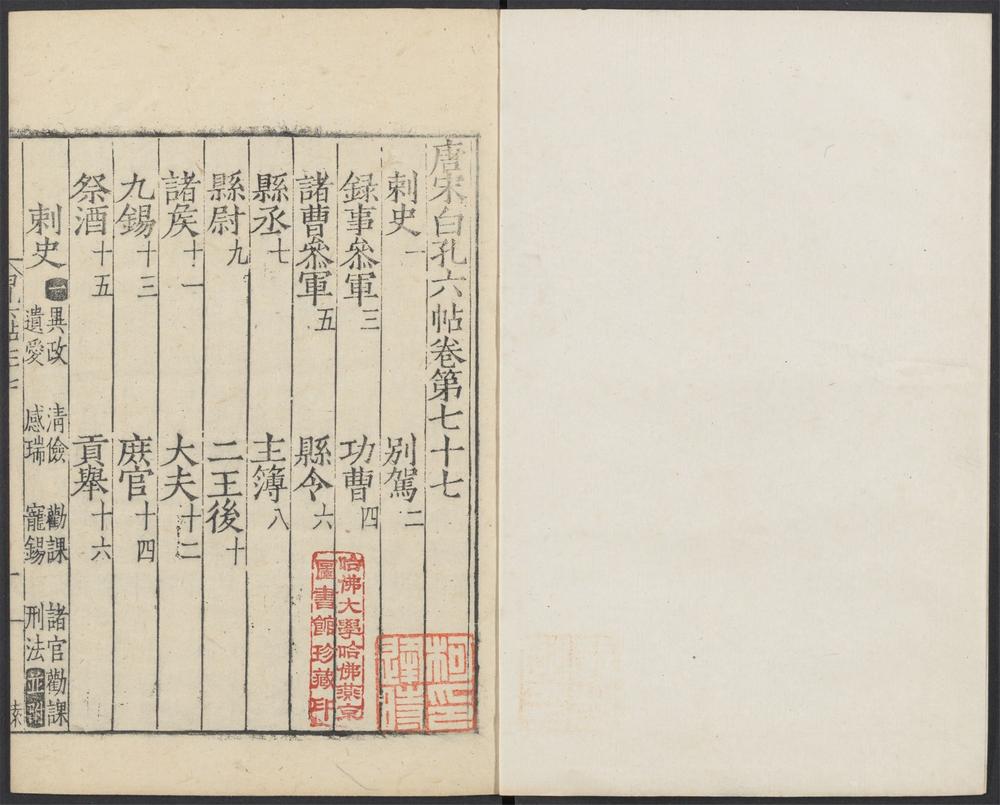 唐宋白孔六帖卷第七十七
刺史一 别駕二
録事叅軍三 功曹四
諸曹叅軍五 縣令六
縣丞七 主簿八
縣尉九 二王後十
諸侯十一 大夫十二
九錫十三 庶官十四
祭酒十五 貢舉十六
刺史一 異政 清儉 勸課 諸官勸課
遺愛 感瑞 寵錫 刑法
哈佛大學哈佛燕京
圖書館珍藏印